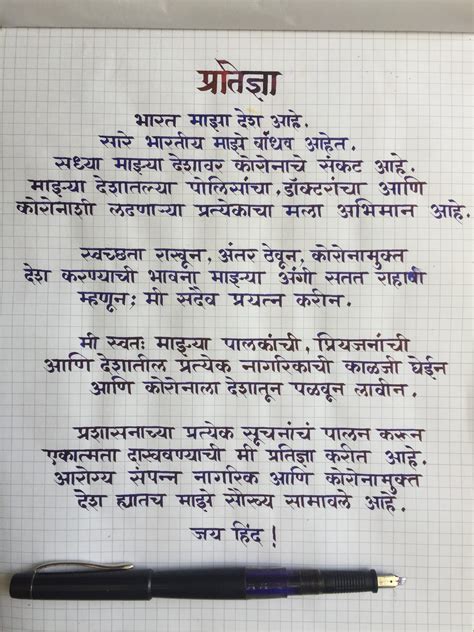 प्रतिज्ञा
भारत माझा देश आहे.
सारे भारतीय माझे बांधव आहेत.
सध्या माझ्या देशावर कोरोनाचे संकट आहे.
माझ्या देशातल्या पोलिसांचा, डॉक्टरांचा आणि
कोरोनाशी लढणाऱ्या प्रत्येकाचा मला अभिमान आहे.
स्वच्छता राखून, अंतर ठेवून, कोरोनामुक्त
देश करण्याची भावना माझ्या अंगी सतत राहावी
म्हणून; मी सदैव प्रयत्न करीन.
मी स्वतः माझ्या पालकांची, प्रियजनांची
आणि देशातील प्रत्येक नागरिकाची काळजी घेईन
आणि कोरोनाला देशातून पळवून लावीन.
प्रशासनाच्या प्रत्येक सूचनांचं पालन करून
एकात्मता दाखवण्याची मी प्रतिज्ञा करीत आहे.
आरोग्य संपन्न नागरिक आणि कोरोनामुक्त
देश ह्यातच माझे सौख्य सामावले आहे.
जय हिंद !